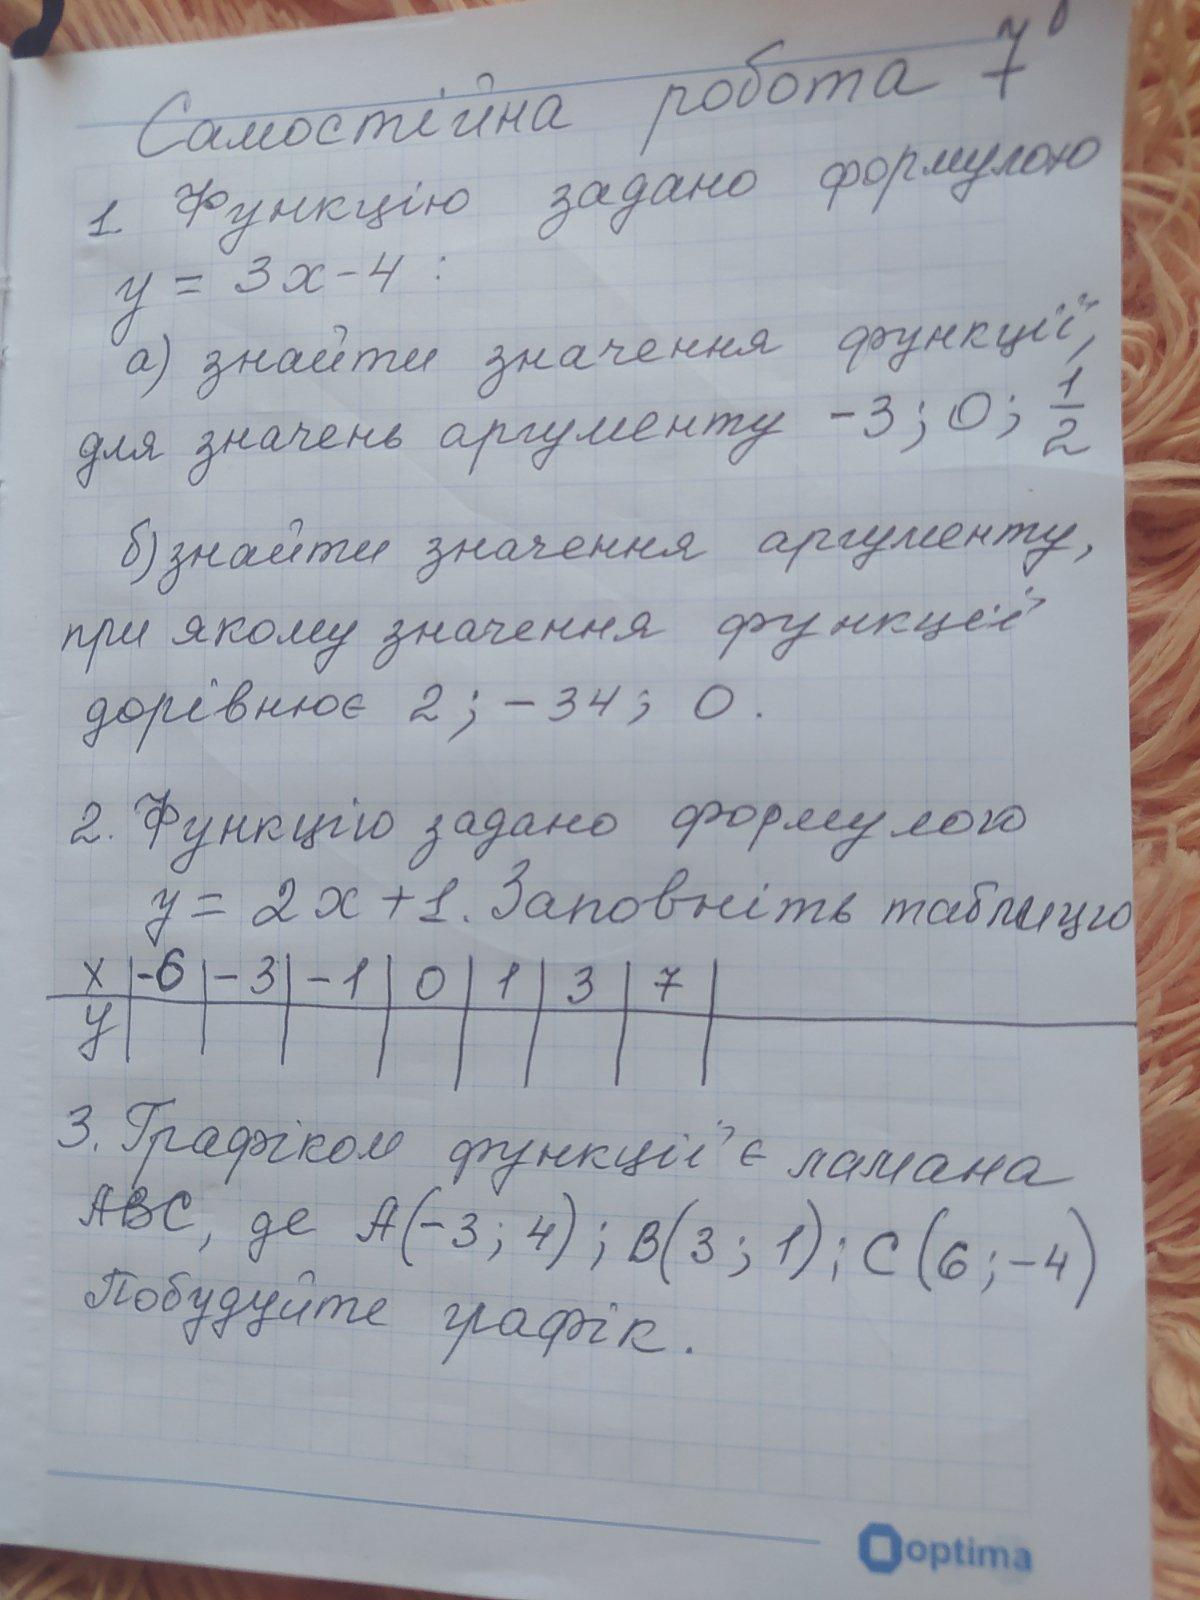 Самостійна робота 7
1. Функцію задано формулою
y = 3x - 4 :
а) знайти значення функції,
для значень аргументу -3; 0; 1/2
б) знайти значення аргументу,
при якому значення функції
дорівнює 2; -34; 0.
2. Функцію задано формулою
y = 2x + 1. Заповніть таблицю
x | -6 | -3 | -1 | 0 | 1 | 3 | 7 |
y
3. Графіком функції є ламана
ABC, де A(-3; 4); B(3; 1); C(6; -4)
Побудуйте графік.
optima